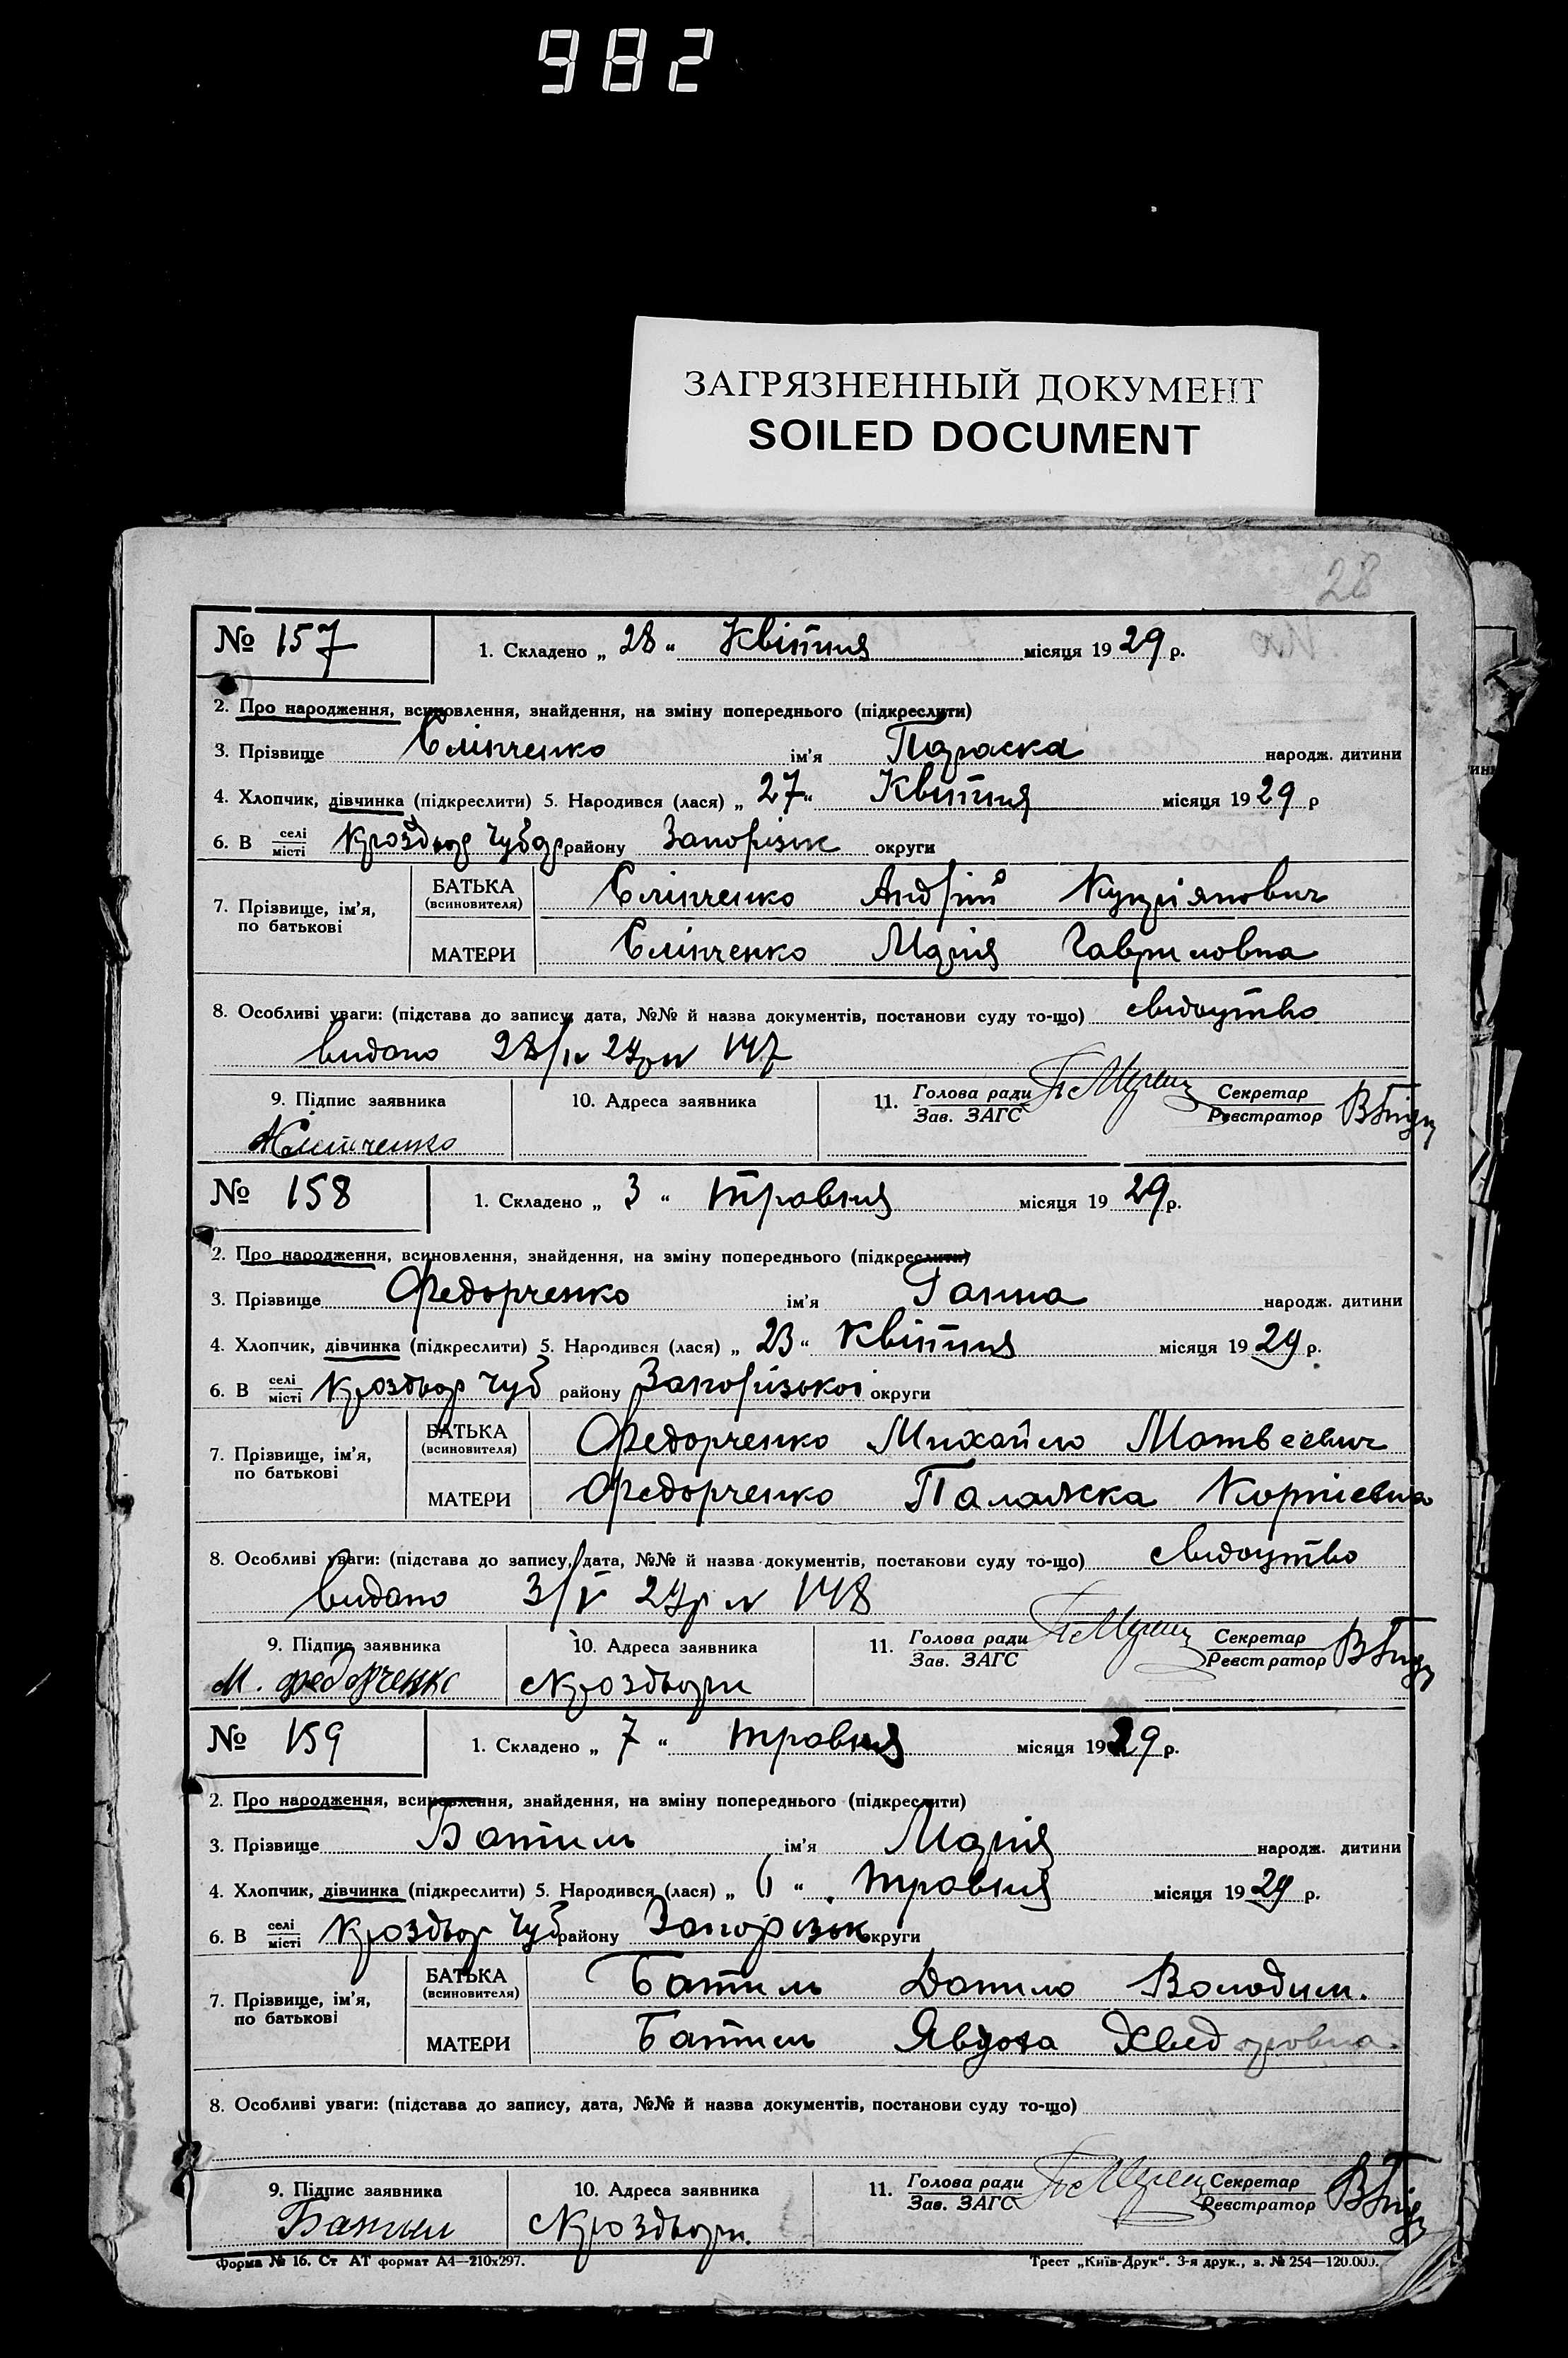 982
ЗАГРЯЗНЕННЫЙ ДОКУМЕНТ
SOILED DOCUMENT
28
№ 157 1. Складено „ 28 “ Квітния місяця 1929 р.
2. Про народження, всиновлення, знайдення, на зміну попереднього (підкреслити)
3. Прізвище Єлінченко ім'я Параска народж. дитини
4. Хлопчик, дівчинка (підкреслити) 5. Народився (лася) „ 27 “ Квітния місяця 1929 р
6. В селі/місті району Запорізьк округи
7. Прізвище, ім'я, по батькові БАТЬКА (всиновителя) Єлінченко Андрій Купріянович
МАТЕРИ Єлінченко Марія Гавриловна
8. Особливі уваги: (підстава до запису, дата, №№ й назва документів, постанови суду то-що) свидоцтво
видано 28/IV 29р № 147
9. Підпис заявника 10. Адреса заявника 11. Голова ради/Зав. ЗАГС Секретар/Реєстратор
№ 158 1. Складено „ 3 “ травня місяця 1929 р.
2. Про народження, всиновлення, знайдення, на зміну попереднього (підкреслити)
3. Прізвище Федорченко ім'я Ганна народж. дитини
4. Хлопчик, дівчинка (підкреслити) 5. Народився (лася) „ 23 “ Квітния місяця 1929 р.
6. В селі/місті Кроздвор Чуб району Запорізької округи
7. Прізвище, ім'я, по батькові БАТЬКА (всиновителя) Федорченко Михайло Матвеевич
МАТЕРИ Федорченко Палажка Корніевна
8. Особливі уваги: (підстава до запису, дата, №№ й назва документів, постанови суду то-що) свидоцтво
видано 3/V 29р № 148
9. Підпис заявника 10. Адреса заявника 11. Голова ради/Зав. ЗАГС Секретар/Реєстратор
М. Федорченко Кроздвори
№ 159 1. Складено „ 7 “ травня місяця 1929 р.
2. Про народження, всиновлення, знайдення, на зміну попереднього (підкреслити)
3. Прізвище Батиль ім'я Марія народж. дитини
4. Хлопчик, дівчинка (підкреслити) 5. Народився (лася) „ 6 “ травня місяця 1929 р.
6. В селі/місті Кроздвор Чуб району Запорізьк округи
7. Прізвище, ім'я, по батькові БАТЬКА (всиновителя) Батиль Данило Володим.
МАТЕРИ Батиль Явдоха Хведоровна.
8. Особливі уваги: (підстава до запису, дата, №№ й назва документів, постанови суду то-що)
9. Підпис заявника 10. Адреса заявника 11. Голова ради/Зав. ЗАГС Секретар/Реєстратор
Батыл Кроздвори.
Форма № 16. Ст АТ формат А4—210х297. Трест „Київ-Друк“. 3-я друк., з. № 254—120.000.